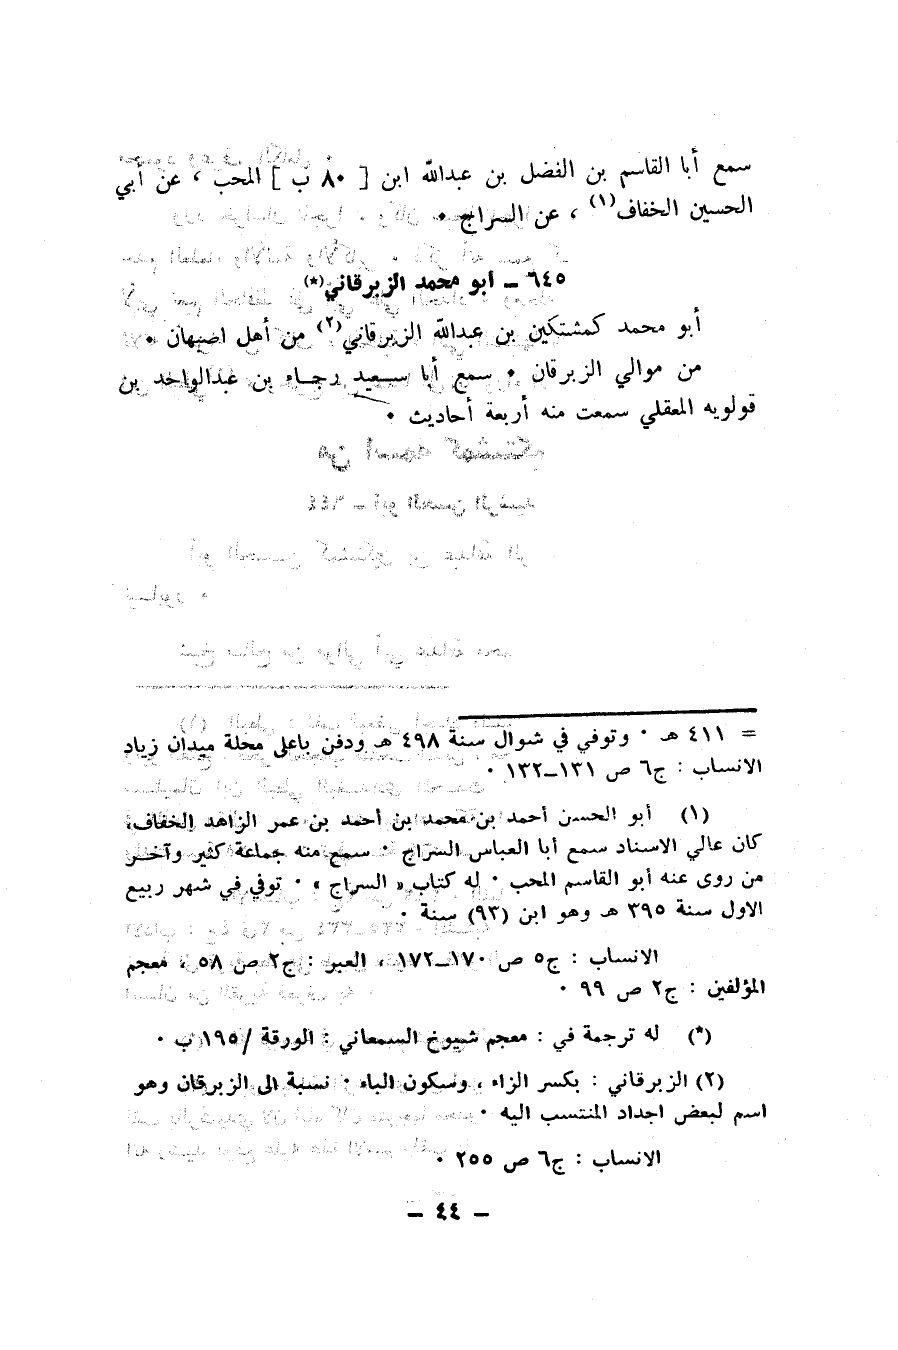 سمع أبا القاسم بن الفضل بن عبدالله ابن [ ٨٠ ب ] المحب ، عن أبي
الحسين الخفاف(١) ، عن السراج ٠
٦٤٥ ــ أبو محمد الزبرقاني(*)
أبو محمد كمشتكين بن عبدالله الزبرقاني(٢) من أهل اصبهان ٠
من موالي الزبرقان ٠ سمع أبا سعيد رجاء بن عبدالواحد بن
قولويه المعقلي سمعت منه أربعة أحاديث ٠
= ٤١١ هـ ٠ وتوفي في شوال سنة ٤٩٨ هـ ودفن باعلى محلة ميدان زياد
الانساب : ج٦ ص ١٣١ــ١٣٢ ٠
(١) أبو الحسن أحمد بن محمد بن أحمد بن عمر الزاهد الخفاف،
كان عالي الاسناد سمع أبا العباس السراج ٠ سمع منه جماعة كثير وآخر
من روى عنه أبو القاسم المحب ٠ له كتاب « السراج » ٠ توفي في شهر ربيع
الاول سنة ٣٩٥ هـ وهو ابن (٩٣) سنة ٠
الانساب : ج٥ ص ١٧٠ــ١٧٢ ، العبر : ج٢ ص ٥٨ ، معجم
المؤلفين : ج٢ ص ٩٩ ٠
(*) له ترجمة في : معجم شيوخ السمعاني : الورقة /١٩٥ ب ٠
(٢) الزبرقاني : بكسر الزاء ، وسكون الباء ٠ نسبة الى الزبرقان وهو
اسم لبعض اجداد المنتسب اليه ٠
الانساب : ج٦ ص ٢٥٥ ٠
ــ ٤٤ ــ